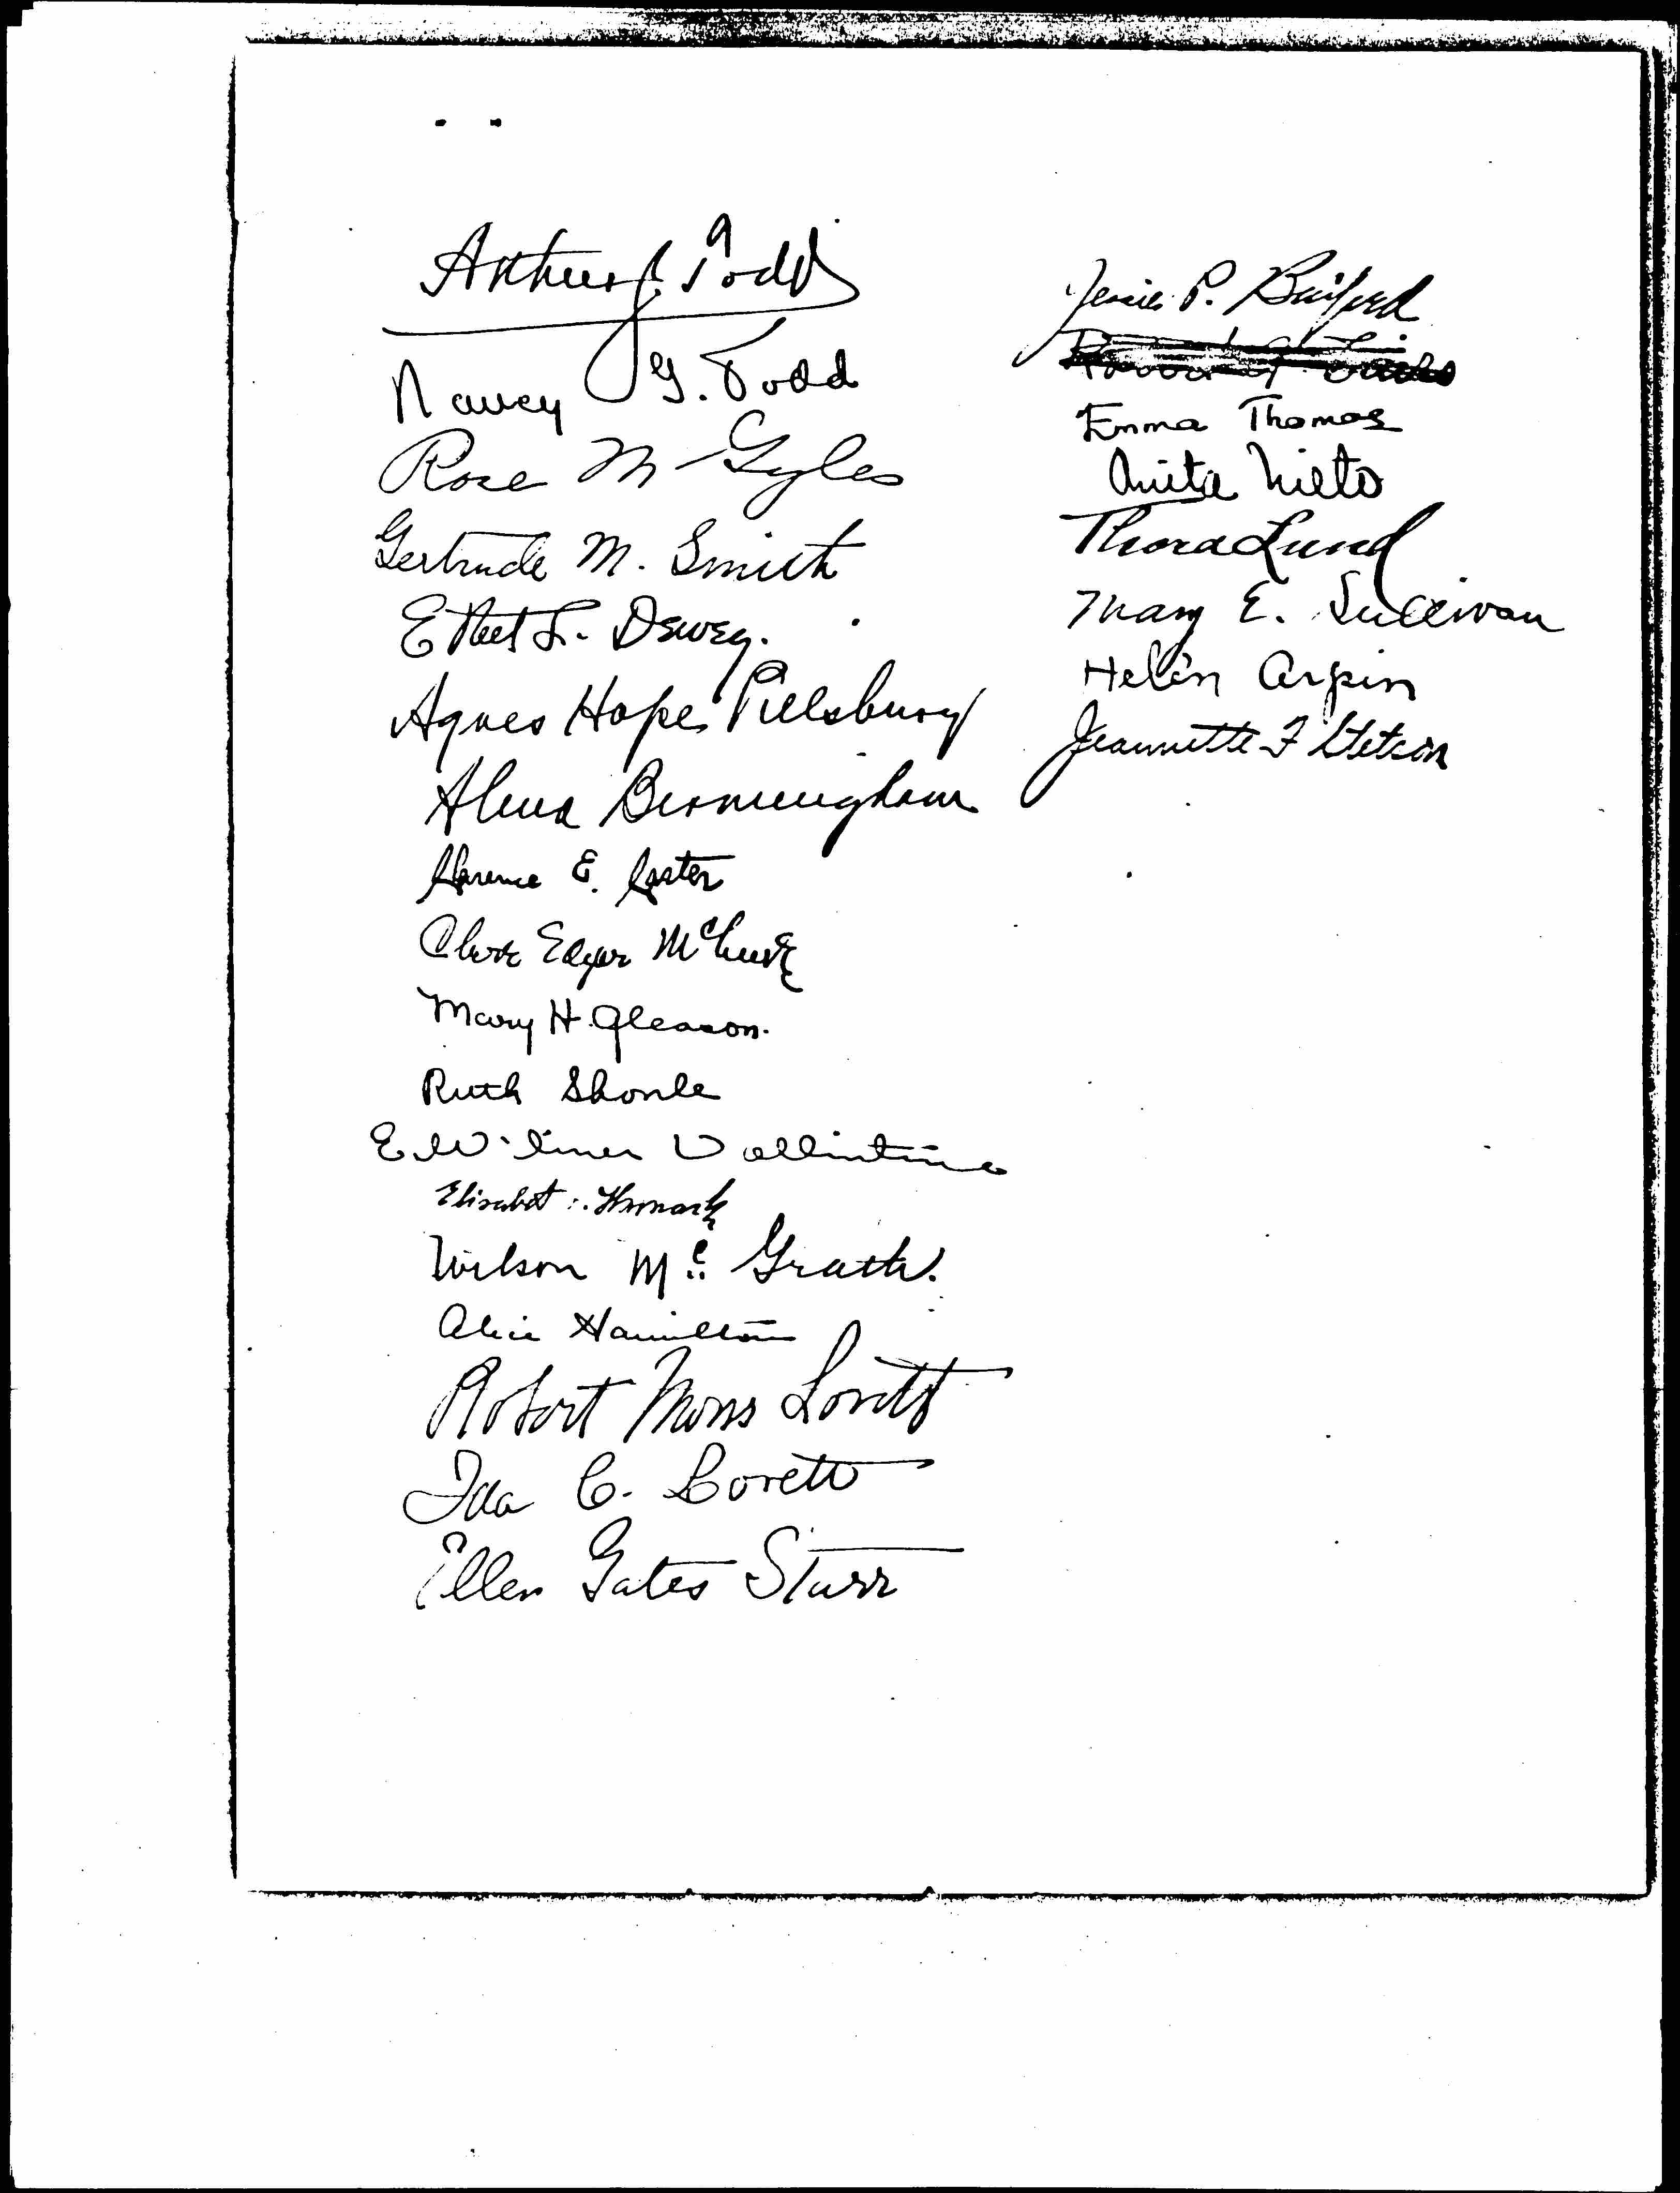 Arthur J. Todd
Nancy G. Todd
Rose M Gyles
Gertrude M. Smith
Ethel L. Dewey.
Agnes Hope Pillsbury
Alma Birmingham
Clarence E. Carter
Edgar
Mary H. Gleason.
Ruth Shonle
E. Wilmer Vollintine
Elisabet
Wilson McGrath.
Alice Hamilton
Robert Morss Lovett
Ida C. Lovett
Ellen Gates Starr
Jessie P.
Emma Thomas
Anita Nieto
Thora Lund
Mary E. Sullivan
Helen Arpin
Jeannette F Stetson